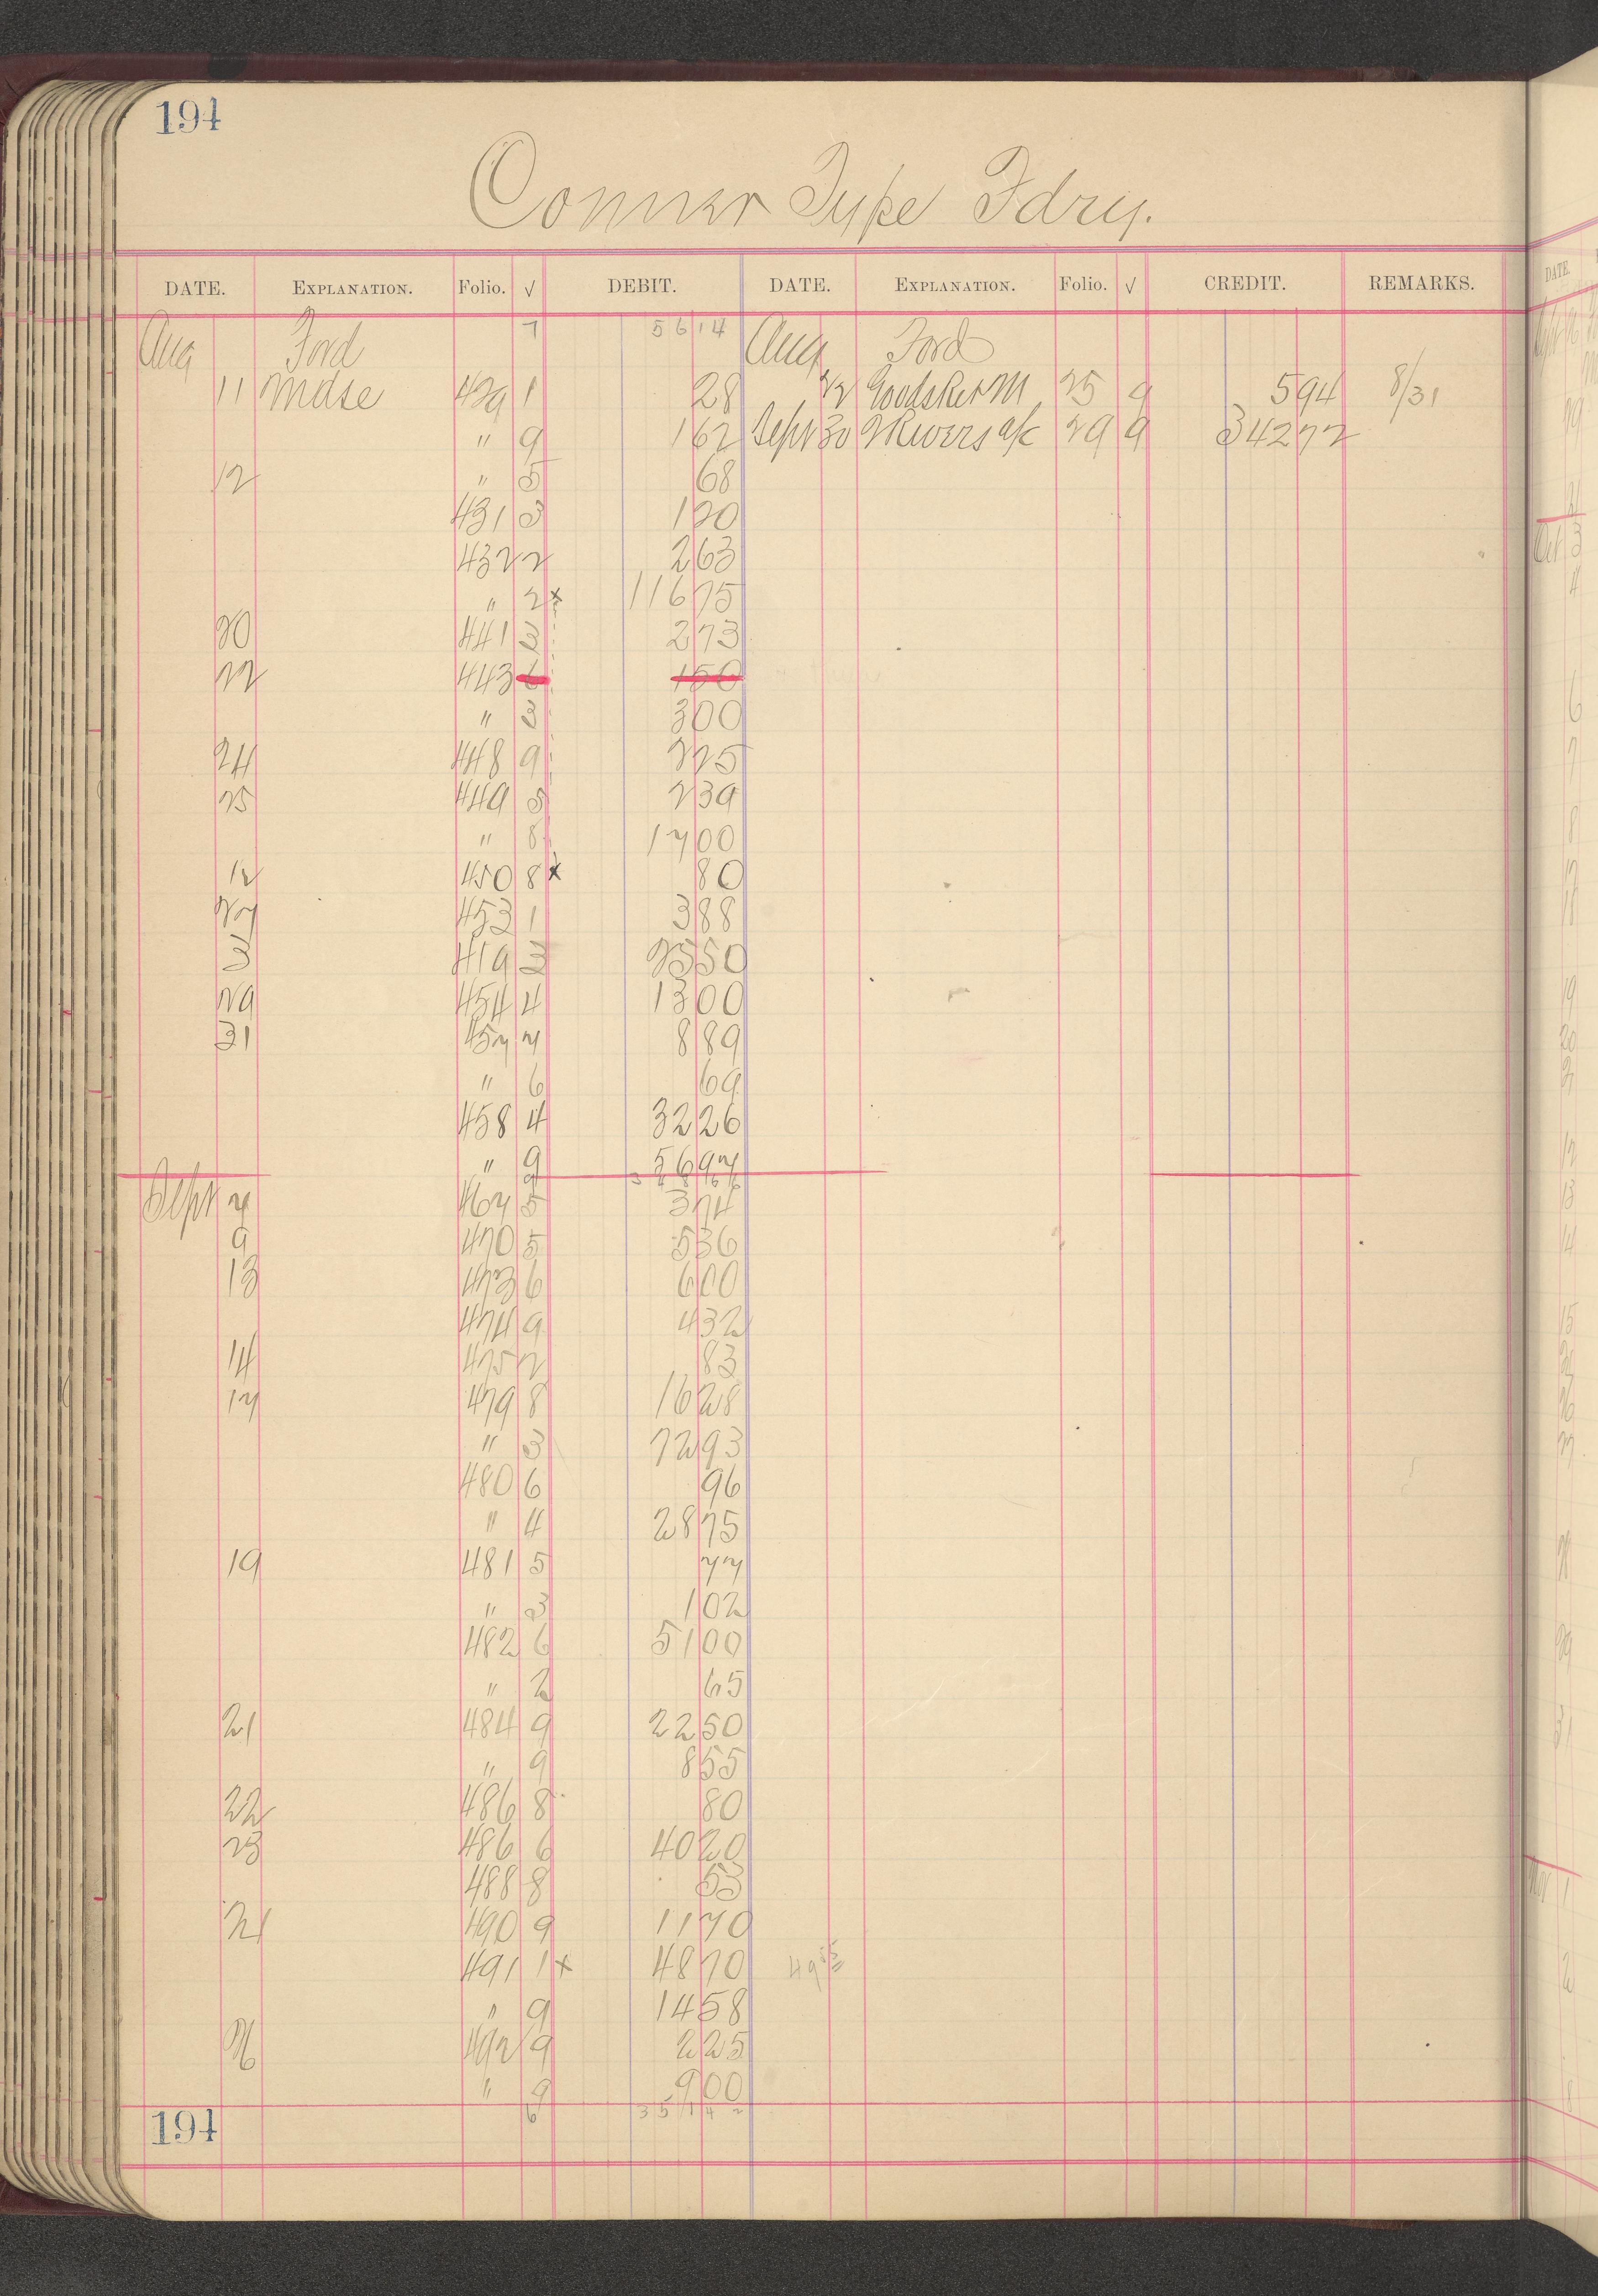 194
Conner Type Fdry.
DATE. EXPLANATION. Folio. √ DEBIT. DATE. EXPLANATION. Folio. √ CREDIT. REMARKS.
Aug Ford 7 56 14 Aug Ford
11 Mdse 429 1 28 22 Goods Ret M 25 9 5 94 8/31
" 9 1 62 Sept 30 2 Rivers a/c 29 9 342 77
12 " 5 68
431 3 1 20
432 2 2 63
" 2 x 116 75
20 441 3 2 73
22 443 6 1 50
" 3 3 00
24 448 9 2 25
25 449 5 2 39
" 8 17 00
12 450 8 x 80
27 453 1 3 88
3 419 3 25 50
29 454 4 13 00
31 457 7 8 89
" 6 69
458 4 32 26
" 9 56 97
Sept 7 467 5 3 74
9 470 5 5 36
13 473 6 6 00
474 9 4 32
14 475 2 83
17 479 8 16 28
" 3 72 93
480 6 96
" 4 28 75
19 481 5 77
" 3 1 02
482 6 51 00
" 2 65
21 484 9 22 50
" 9 8 55
22 486 8 80
23 486 6 40 20
488 8 53
24 490 9 11 70
491 1 x 48 70
" 9 14 58
26 492 9 2 25
" 9 9 00
6
194